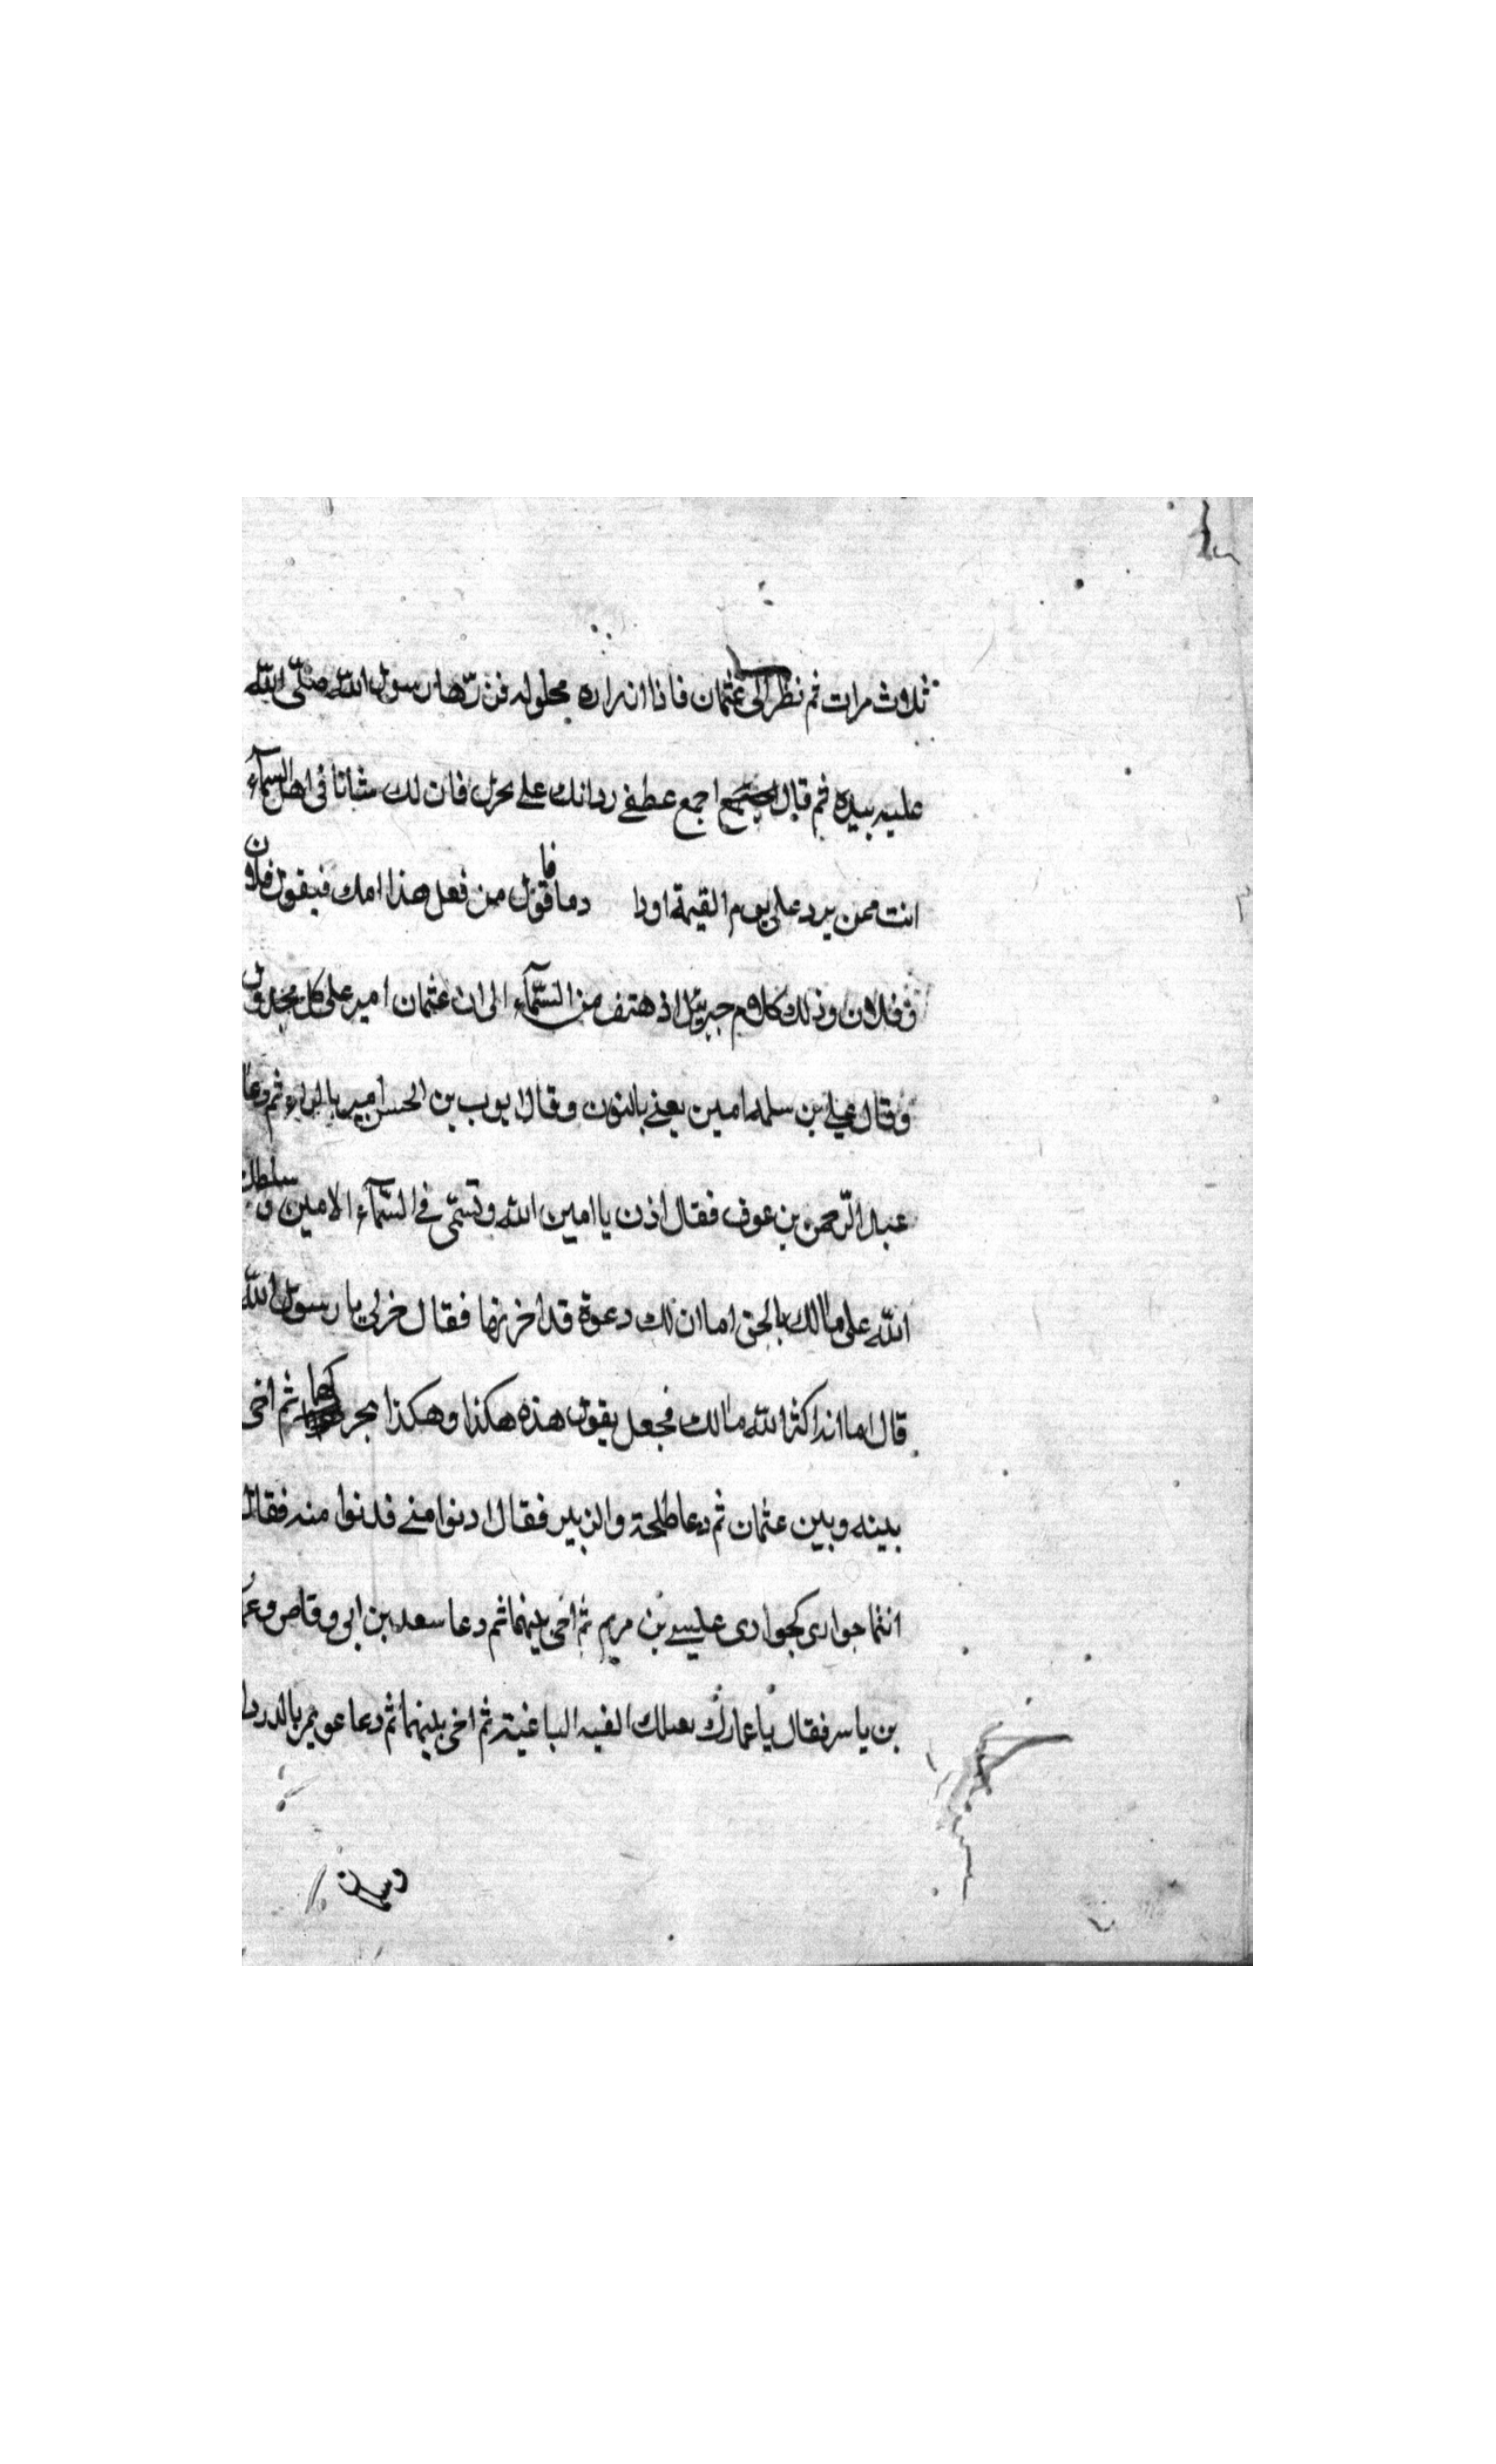 ثلاث مرات ثم نظر الى عثمان فاذا ازاره محلوله فزرّها رسول الله صلّى الله
عليه بيده ثم قال اجمع عطفى ردائك على نحرك فان لك شانا فى اهل السمآء
انت ممن يرد على يوم القيمة اوداجه دما فاقول من فعل هذا بك فيقول فلان
وفلان وذلك كلام جبريئل اذ هتف من السّمآء الى ان عثمان امير على كل مخذول
وقال على بن سلمه امين يعنى بالنون وقال ايوب بن الحسن امير بالراء ثم دعا
عبد الرّحمن بن عوف فقال اذن يا امين الله وتسمّى فى السّمآء الامين وسلطك
الله على مالك بالحق اما ان لك دعوة قد اخرتها فقال خر لى يا رسول الله
قال اما اند اكثر الله مالك فجعل يقول هذه هكذا وهكذا ثم اخى
بينه وبين عثمان ثم دعا طلحة والزبير فقال ادنوا منى فدنوا منه فقال
انتما حوارى كحوارى عيسى بن مريم ثم اخى بينهما ثم دعا سعد بن ابى وقاص وعمار
بن ياسر فقال يا عمار الفيه الباغية ثم اخى بينهما ثم دعا عويمر بالدردا